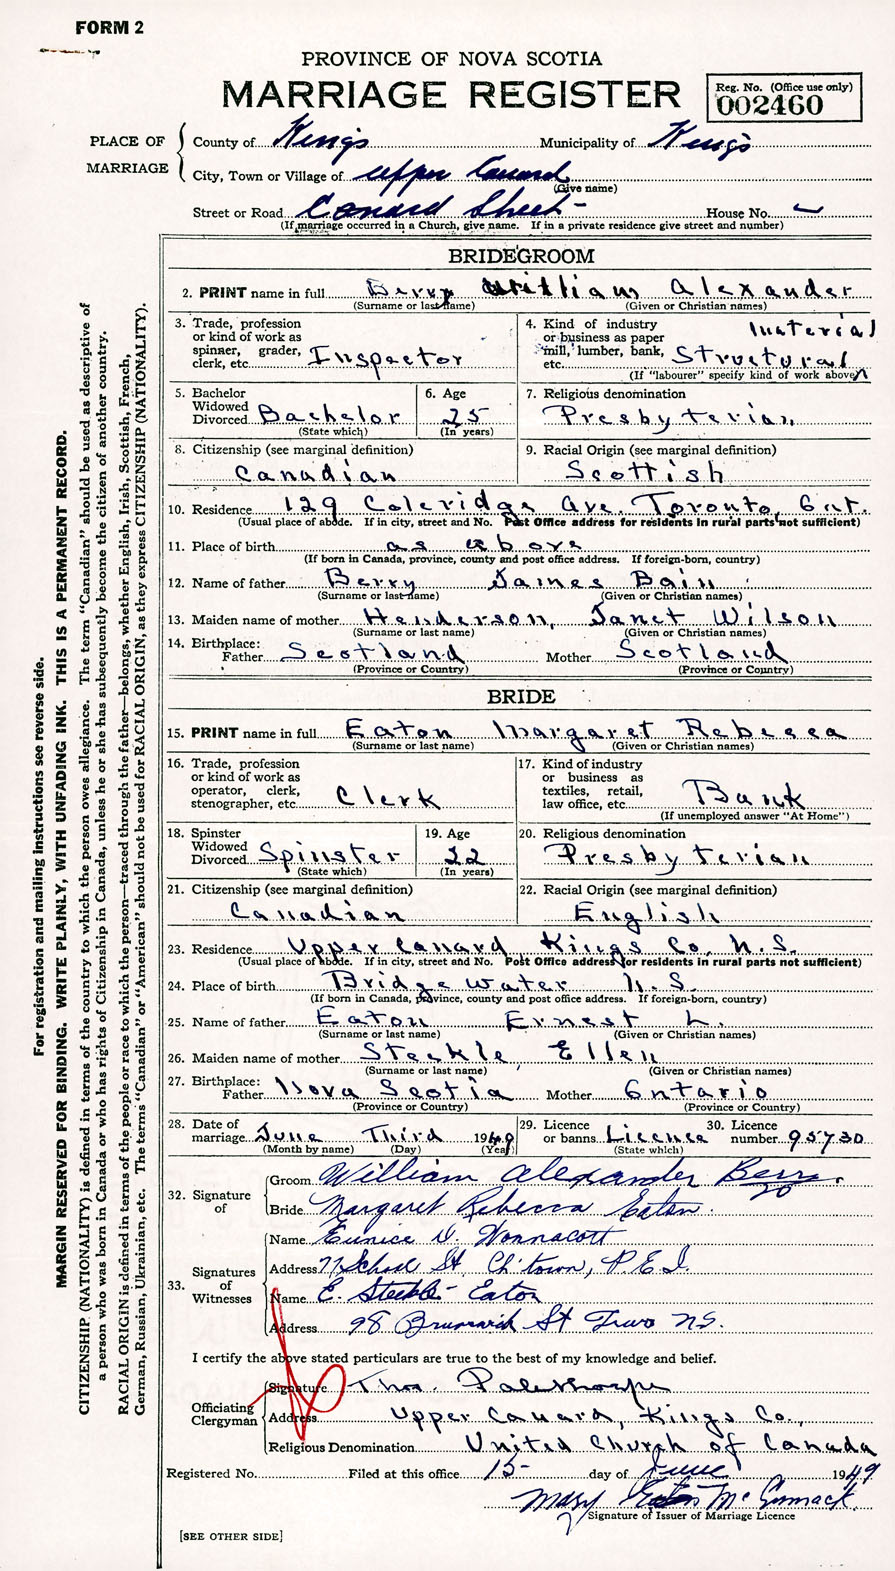 FORM 2
PROVINCE OF NOVA SCOTIA
MARRIAGE REGISTER
Reg. No. (Office use only)
002460
PLACE OF MARRIAGE
County of Kings Municipality of Kings
City, Town or Village of Upper Canard
(Give name)
Street or Road Conard Street - House No.
(If marriage occurred in a Church, give name. If in a private residence give street and number)
BRIDEGROOM
2. PRINT name in full Berry William Alexander
(Surname or last name) (Given or Christian names)
3. Trade, profession or kind of work as spinner, grader, clerk, etc. Inspector
4. Kind of industry or business as paper mill, lumber, bank, etc. Structural material
(If "labourer" specify kind of work above)
5. Bachelor Widowed Divorced Bachelor
(State which)
6. Age 25
(In years)
7. Religious denomination
Presbyterian
8. Citizenship (see marginal definition)
Canadian
9. Racial Origin (see marginal definition)
Scottish
10. Residence 129 Coleridge Ave. Toronto, Ont.
(Usual place of abode. If in city, street and No. Post Office address for residents in rural parts not sufficient)
11. Place of birth as above
(If born in Canada, province, county and post office address. If foreign-born, country)
12. Name of father Berry James Bain
(Surname or last name) (Given or Christian names)
13. Maiden name of mother Henderson, Janet Wilson
(Surname or last name) (Given or Christian names)
14. Birthplace:
Father Scotland Mother Scotland
(Province or Country) (Province or Country)
BRIDE
15. PRINT name in full Eaton Margaret Rebecca
(Surname or last name) (Given or Christian names)
16. Trade, profession or kind of work as operator, clerk, stenographer, etc. Clerk
17. Kind of industry or business as textiles, retail, law office, etc. Bank
(If unemployed answer "At Home")
18. Spinster Widowed Divorced Spinster
(State which)
19. Age 22
(In years)
20. Religious denomination
Presbyterian
21. Citizenship (see marginal definition)
Canadian
22. Racial Origin (see marginal definition)
English
23. Residence Upper Canard Kings Co., N.S.
(Usual place of abode. If in city, street and No. Post Office address for residents in rural parts not sufficient)
24. Place of birth Bridgewater N.S.
(If born in Canada, province, county and post office address. If foreign-born, country)
25. Name of father Eaton Ernest L.
(Surname or last name) (Given or Christian names)
26. Maiden name of mother Steckle, Ellen
(Surname or last name) (Given or Christian names)
27. Birthplace:
Father Nova Scotia Mother Ontario
(Province or Country) (Province or Country)
28. Date of marriage June Third 1949
(Month by name) (Day) (Year)
29. Licence or banns Licence
(State which)
30. Licence number 95730
32. Signature of
Groom William Alexander Berry.
Bride Margaret Rebecca Eaton.
33. Signatures of Witnesses
Name Eunice D. Wonnacott
Address 71 School St. Ch'town, P.E.I.
Name E. Steckle-Eaton
Address 98 Brunswick St Truro N.S.
I certify the above stated particulars are true to the best of my knowledge and belief.
Officiating Clergyman
Signature Thos. Palethorpe
Address Upper Canard, Kings Co.,
Religious Denomination United Church of Canada
Registered No. Filed at this office 15 day of June 1949
Mary Eaton McCormack
Signature of Issuer of Marriage Licence
[SEE OTHER SIDE]
For registration and mailing instructions see reverse side.
MARGIN RESERVED FOR BINDING. WRITE PLAINLY, WITH UNFADING INK. THIS IS A PERMANENT RECORD.
CITIZENSHIP (NATIONALITY) is defined in terms of the country to which the person owes allegiance. The term "Canadian" should be used as descriptive of
a person who was born in Canada or who has rights of Citizenship in Canada, unless he or she has subsequently become the citizen of another country.
RACIAL ORIGIN is defined in terms of the people or race to which the person—traced through the father—belongs, whether English, Irish, Scottish, French,
German, Russian, Ukrainian, etc. The terms "Canadian" or "American" should not be used for RACIAL ORIGIN, as they express CITIZENSHIP (NATIONALITY).